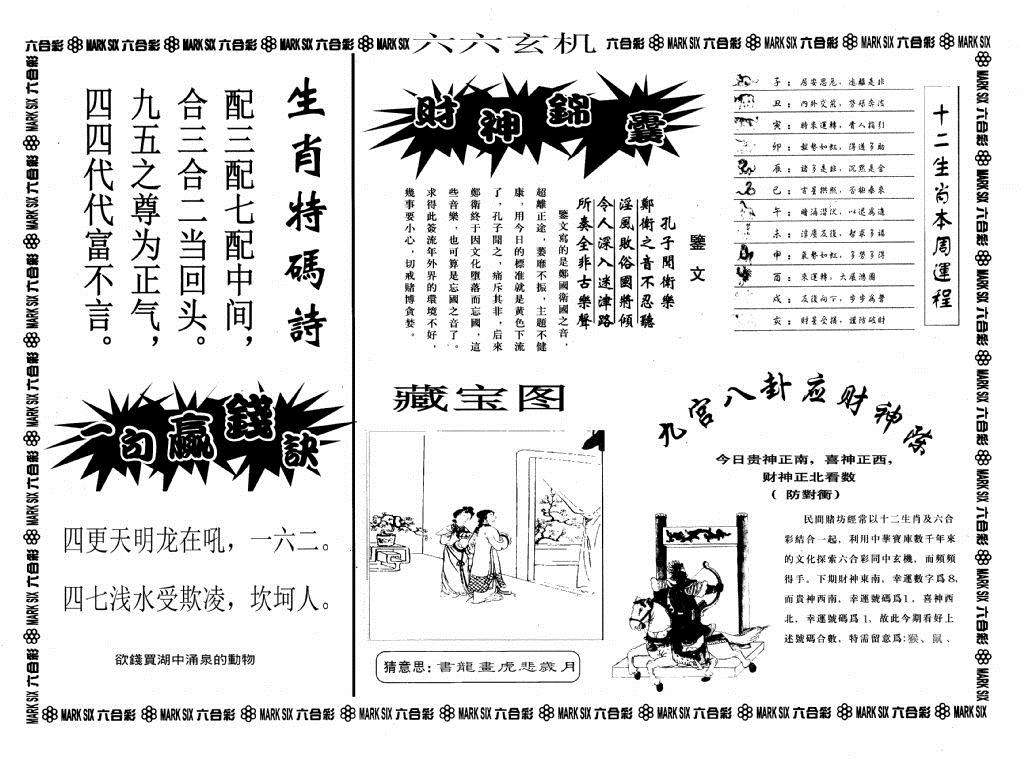 六合彩 MARK SIX 六合彩 MARK SIX 六合彩 MARK SIX 六合彩 MARK SIX 六六玄机 六合彩 MARK SIX 六合彩 MARK SIX 六合彩 MARK SIX 六合彩 MARK SIX
生肖特碼詩
配三配七配中间，
合三合二当回头。
九五之尊为正气，
四四代代富不言。
一句赢錢訣
四更天明龙在吼，一六二。
四七浅水受欺凌，坎坷人。
欲錢買湖中涌泉的動物
財神錦囊
鑒文
孔子聞衛樂
鄭衛之音不忍聽
淫風敗俗國將傾
令人深入迷津路
所奏全非古樂聲
鑒文寫的是鄭國衛國之音，
超離正途，萎靡不振，主題不健
康，用今日的標准就是黄色下流
了，孔子聞之，痛斥其非，后來
鄭衛终于因文化墮落而忘國，這
些音樂，也可算是忘國之音了。
求得此簽流年外界的環境不好，
幾事要小心，切戒賭博貪婪。
十二生肖本周運程
子：居安思危，遠離是非
丑：内外交葉，勞碌奔波
寅：時來運轉，貴人指引
卯：氣勢如虹，得道多助
辰：諸多是非，沉默是金
巳：吉星拱照，否極泰來
午：暗涌潜伏，以退為進
未：
申：氣勢如虹，多勞多得
酉：來運轉，大展鴻圖
戌：
亥：財星受損，謹防破財
藏宝图
猜意思：書龍畫虎悲歲月
九宫八卦应财神际
今日贵神正南，喜神正西，
财神正北看数
（防對衝）
民間賭坊經常以十二生肖及六合
彩結合一起，利用中華寶庫數千年來
的文化探索六合彩同中玄機，而頻頻
得手，下期財神東南，幸運數字爲8，
而貴神西南，幸運號碼爲1，喜神西
北，幸運號碼爲1，故此今期看好上
述號碼合數，特需留意爲：猴、鼠、
MARK SIX 六合彩 MARK SIX 六合彩 MARK SIX 六合彩 MARK SIX 六合彩 MARK SIX 六合彩 MARK SIX 六合彩 MARK SIX 六合彩 MARK SIX 六合彩 MARK SIX 六合彩 MARK SIX